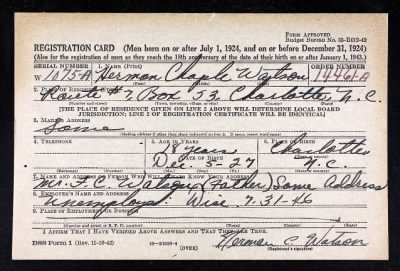 FORM APPROVED
Budget Bureau No. 33-R012-42
REGISTRATION CARD (Men born on or after July 1, 1924, and on or before December 31, 1924)
(Also for the registration of men as they reach the 18th anniversary of the date of their birth on or after January 1, 1943.)
SERIAL NUMBER 1. NAME (Print) ORDER NUMBER
W 1075-A Herman Watson 14461-A
2. PLACE OF RESIDENCE (Print)
Route # 7 Box 53 Charlotte, N.C.
(Number and street) (Town, township, village, or city) (County) (State)
[THE PLACE OF RESIDENCE GIVEN ON LINE 2 ABOVE WILL DETERMINE LOCAL BOARD
JURISDICTION; LINE 2 OF REGISTRATION CERTIFICATE WILL BE IDENTICAL]
3. MAILING ADDRESS
Same
4. TELEPHONE 5. AGE IN YEARS 6. PLACE OF BIRTH
18 Years Charlotte
DATE OF BIRTH
Dec. 5-27 N.C.
(Exchange) (Number) (Mo.) (Day) (Yr.) (State or country)
7. NAME AND ADDRESS OF PERSON WHO WILL ALWAYS KNOW YOUR ADDRESS
Mr. F. C. Watson (Father) Same Address
8. EMPLOYER'S NAME AND ADDRESS
Unemployed 7-31-46
9. PLACE OF EMPLOYMENT OR BUSINESS
(Number and street or R. F. D. number) (Town) (County) (State)
I AFFIRM THAT I HAVE VERIFIED ABOVE ANSWERS AND THAT THEY ARE TRUE.
DSS Form 1 (Rev. 11-16-42)
(OVER)
Herman C. Watson
(Registrant's signature)